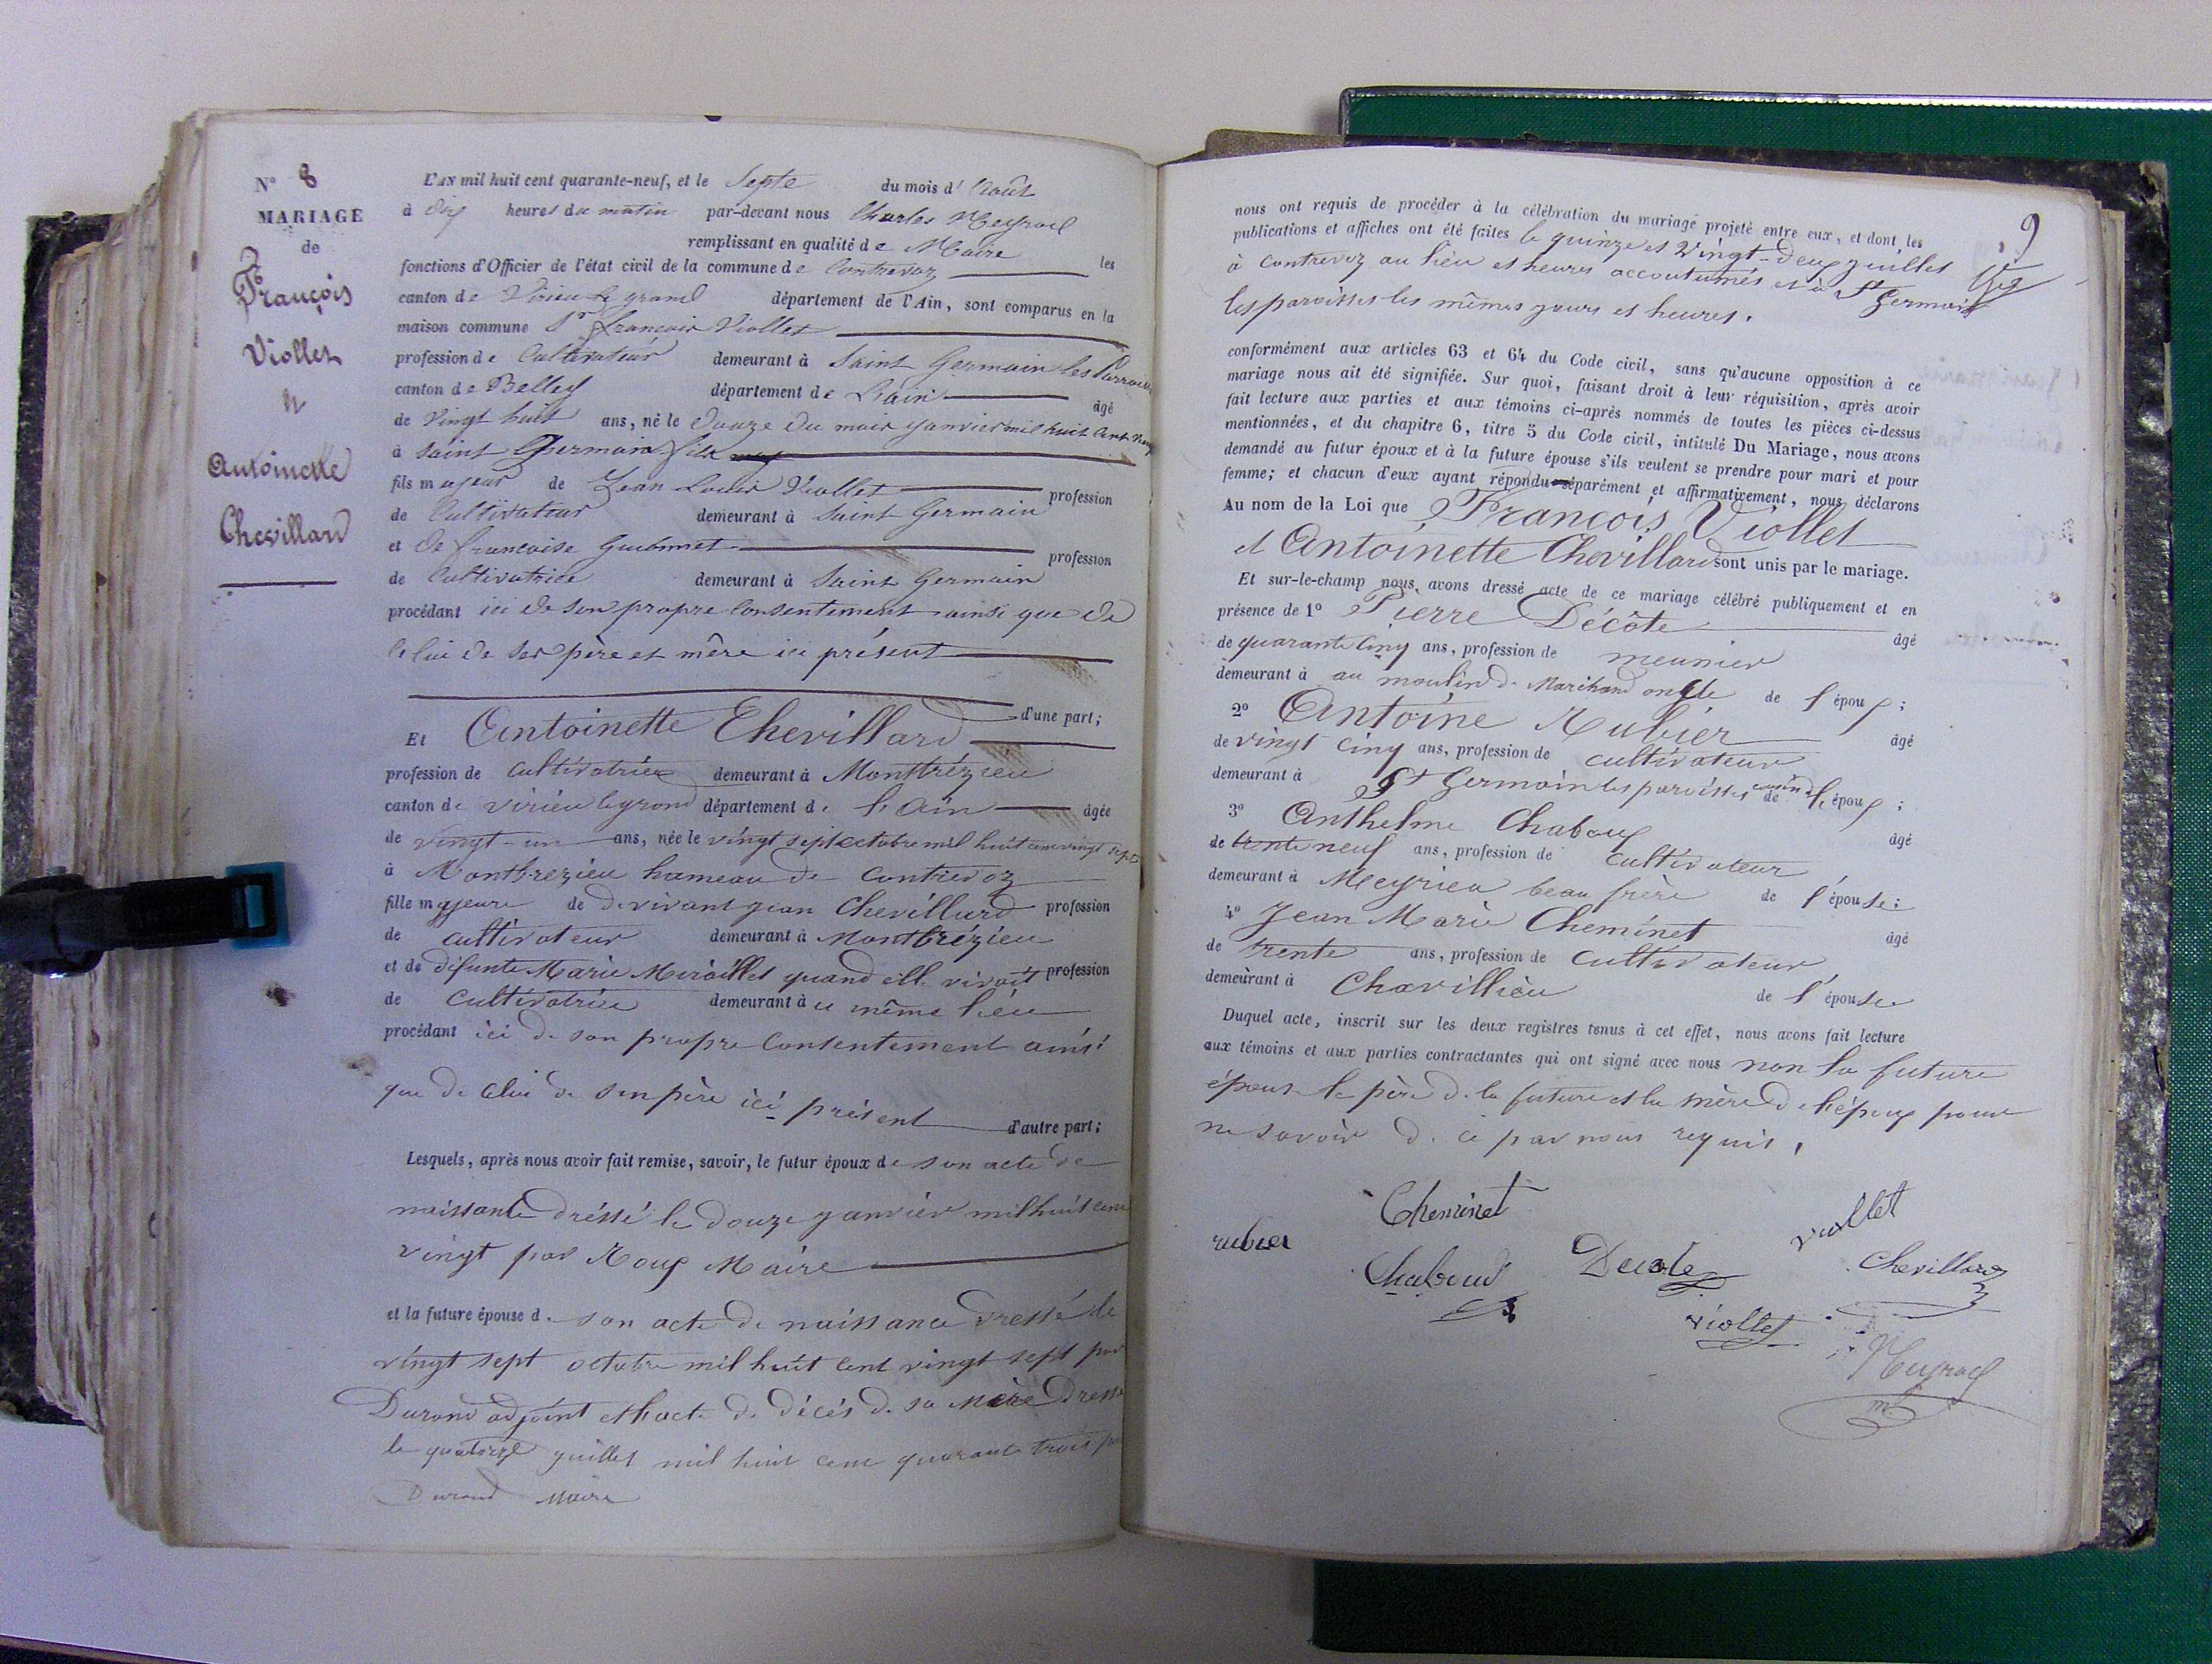 N° 8
MARIAGE
de
François
Viollet
&
Antoinette
Chevillard
L'AN mil huit cent quarante-neuf, et le Septe du mois d'Août
à dix heures du matin par-devant nous Charles Meyrael
remplissant en qualité de Maire les
fonctions d'Officier de l'état civil de la commune de Contrevoz
canton de Virieu le grand département de l'Ain, sont comparus en la
maison commune Sr françois Viollet
profession de Cultivateur demeurant à Saint Germain les
canton de Belley département de L'ain âgé
de Vingt huit ans, né le douze du mois janvier mil huit Cent
à Saint Germain
fils majeur de Jean Louis Viollet profession
de Cultivateur demeurant à Saint Germain
et de francoise profession
de Cultivatrice demeurant à Saint Germain
procédant ici de son propre Consentement ainsi que de
Celui de ses père et mère ici présent
d'une part;
Et Antoinette Chevillard
profession de cultivatrice demeurant à Montbrézieu
canton de virieu le grand département de l'Ain âgée
de vingt-un ans, née le vingt sept octobre mil huit cent vingt sept
à Montbrezieu hameau de Contrevoz
fille majeure de de vivant jean Chevillard profession
de cultivateur demeurant à Montbrézieu
et de défunte Marie quand elle vivait profession
de Cultivatrice demeurant à ce même lieu
procédant ici de son propre Consentement ainsi
que de Celui de son père ici présent d'autre part;
Lesquels, après nous avoir fait remise, savoir, le futur époux de son acte de
naissance dréssé le douze janvier mil huit cent
vingt par Roux Maire
et la future épouse de son acte de naissance dressé le
vingt sept octobre mil huit cent vingt sept par
Durand adjoint et l'acte de décés de sa Mère dressé
le quatorze juillet mil huit cent quarante trois par
Durand Maire
9
nous ont requis de procéder à la célébration du mariage projeté entre eux, et dont les
publications et affiches ont été faites le quinze et Vingt-deux juillet
à Contrevoz au lieu et heures accoutumés et à St Germain
les paroisses les mêmes jours et heures.
conformément aux articles 63 et 64 du Code civil, sans qu'aucune opposition à ce
mariage nous ait été signifiée. Sur quoi, faisant droit à leur réquisition, après avoir
fait lecture aux parties et aux témoins ci-après nommés de toutes les pièces ci-dessus
mentionnées, et du chapitre 6, titre 5 du Code civil, intitulé Du Mariage, nous avons
demandé au futur époux et à la future épouse s'ils veulent se prendre pour mari et pour
femme; et chacun d'eux ayant répondu séparément et affirmativement, nous déclarons
Au nom de la Loi que François Viollet
et Antoinette Chevillard sont unis par le mariage.
Et sur-le-champ nous avons dressé acte de ce mariage célébré publiquement et en
présence de 1° Pierre Décôte âgé
de quarante Cinq ans, profession de meunier
demeurant à au moulin de Marchand oncle de l'époux;
2° Antoine Rubier âgé
de vingt Cinq ans, profession de cultivateur
demeurant à St Germain les paroisses cousin de l'époux;
3° Anthelme Chaboux âgé
de trente neuf ans, profession de cultivateur
demeurant à Meyrieu beau frère de l'épouse;
4° Jean Marie Cheminet âgé
de trente ans, profession de cultivateur
demeurant à Chavillieu de l'épouse
Duquel acte, inscrit sur les deux registres tenus à cet effet, nous avons fait lecture
aux témoins et aux parties contractantes qui ont signé avec nous non la future
épouse le père de la future et la mère de l'époux pour
ne savoir de ce par nous requis.
Cheminet
viollet
rubier
Chaboud
Decote
Chevillard
viollet